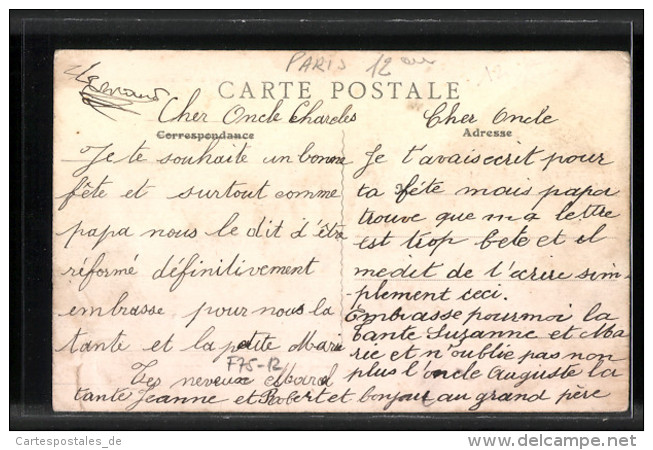 PARIS 12 em
CARTE POSTALE
Correspondance
Adresse
Cher Oncle Charcles
Je te souhaite un bonne
fête et surtout comme
papa nous le dit d'être
réformé définitivement
embrasse pour nous la
tante et la petite Marie
F75-12
Tes neveux
Cher Oncle
Je t'avais ecrit pour
ta fête mais papa
trouve que ma lettre
est trop bete et il
medit de l'ecrire sim-
plement ceci.
Embrasse pour moi la
tante Suzanne et Ma
rie et n'oublie pas non
plus l'oncle Auguste la
tante Jeanne et Robert et bonjour au grand père
Cartespostales_de
www.delcampe.net